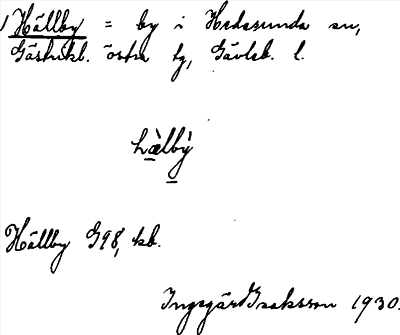 1 Hällby = by i Hedesunda sn,
Gästrikl. östra tg, Gävleb. l.
hælby
Hällby G98, kb.
Ingegärd Isaksson 1930.